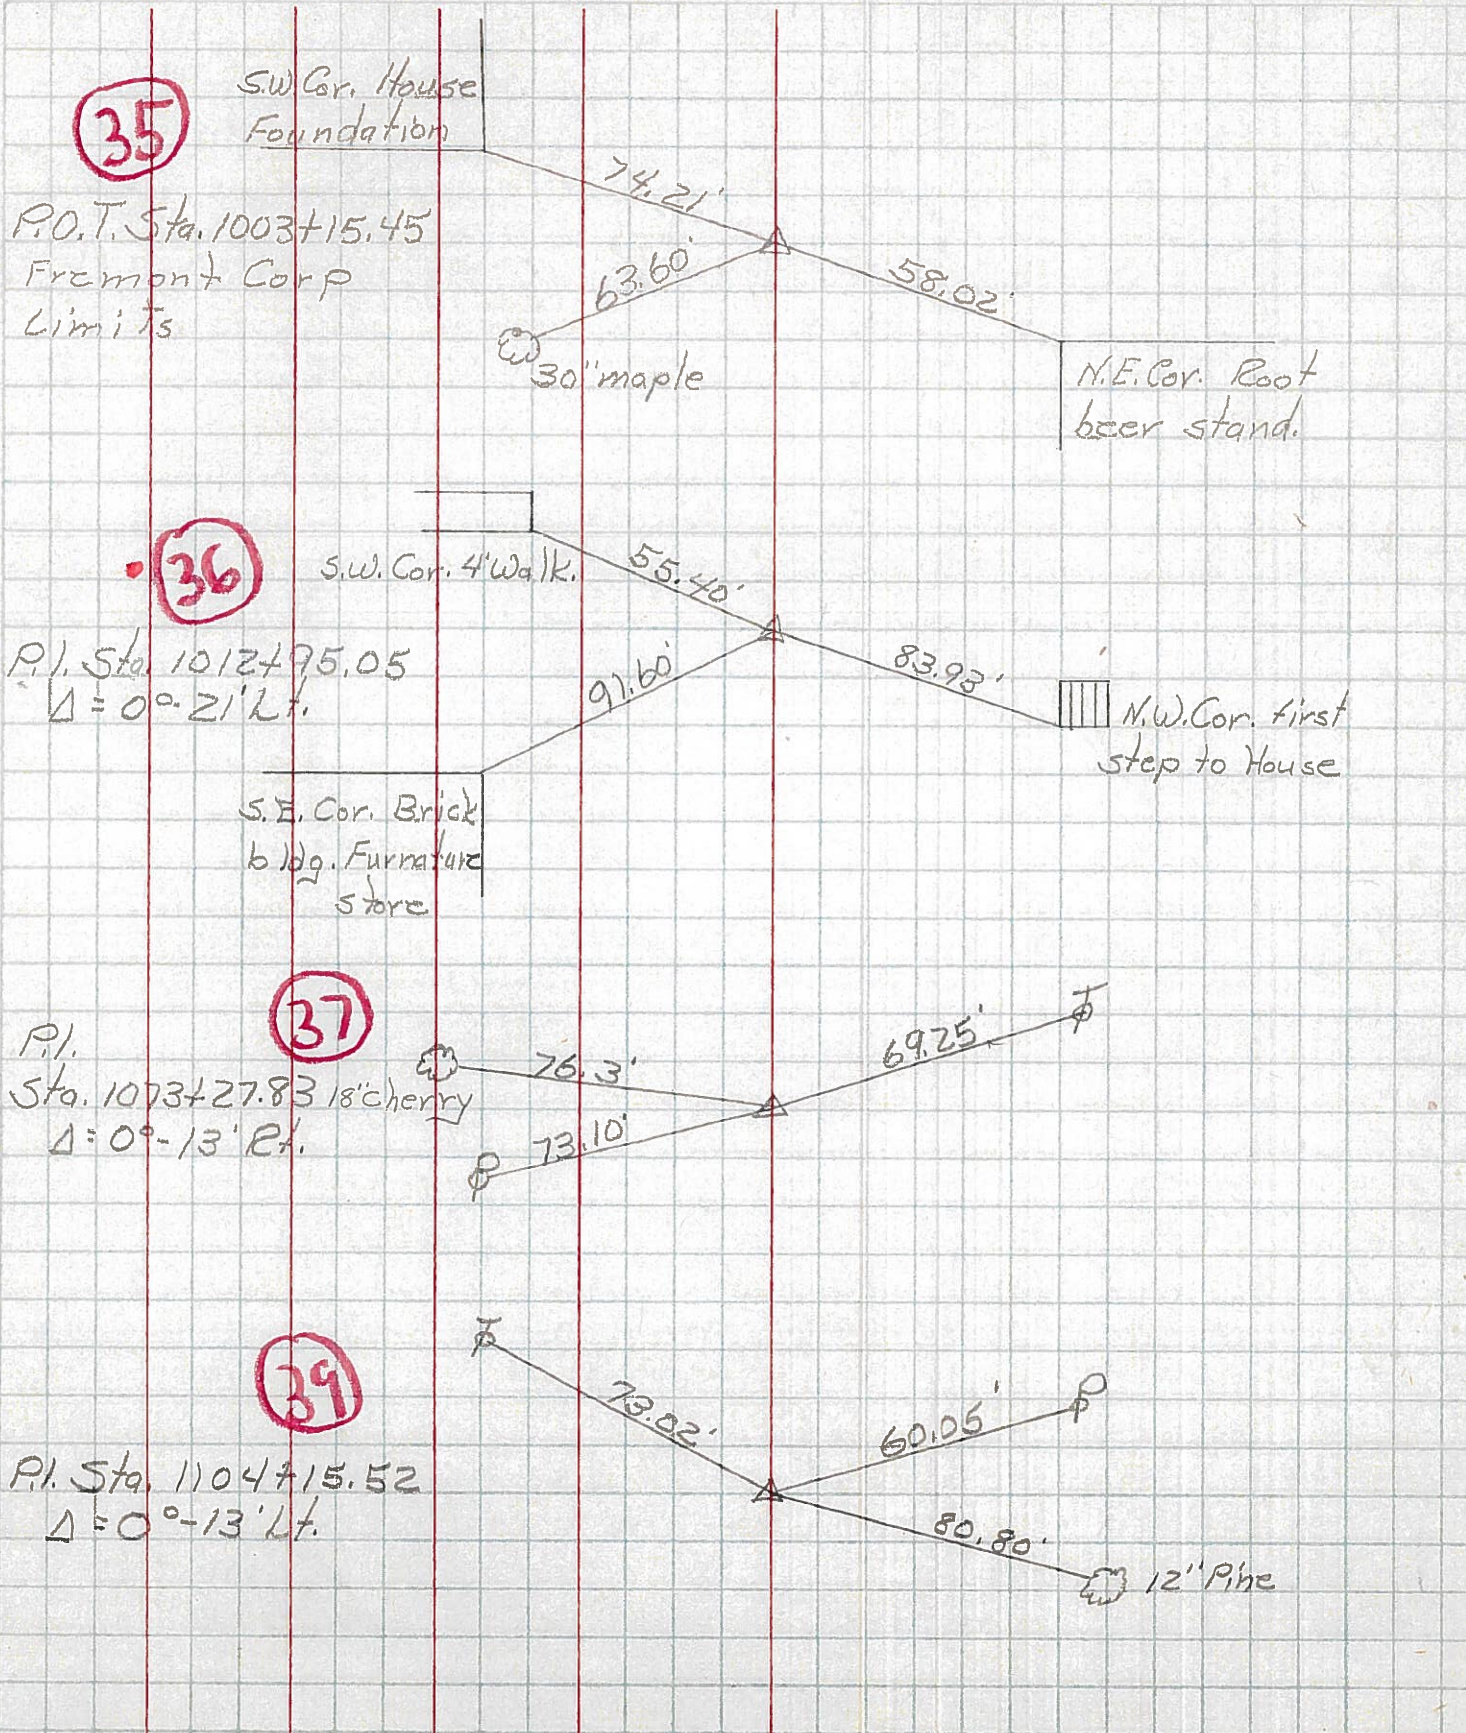 35
S.W Cor. House
Foundation
P.O.T. Sta. 1003+15.45
Fremont Corp
Limits
74.21'
63.60'
58.02'
30" maple
N.E. Cor. Root
beer stand.
36
S.W. Cor. 4' Walk.
55.40'
P.I. Sta. 1012+95.05
Δ = 0°-21' Lt.
91.60'
83.93'
N.W. Cor. first
step to House
S.E. Cor. Brick
bldg. Furnature
store
37
P.I.
Sta. 1073+27.83
Δ = 0°-13' Rt.
18" cherry
76.3'
69.25'
73.10'
39
P.I. Sta. 1104+15.52
Δ = 0°-13' Lt.
73.02'
60.05'
80.80'
12" Pine